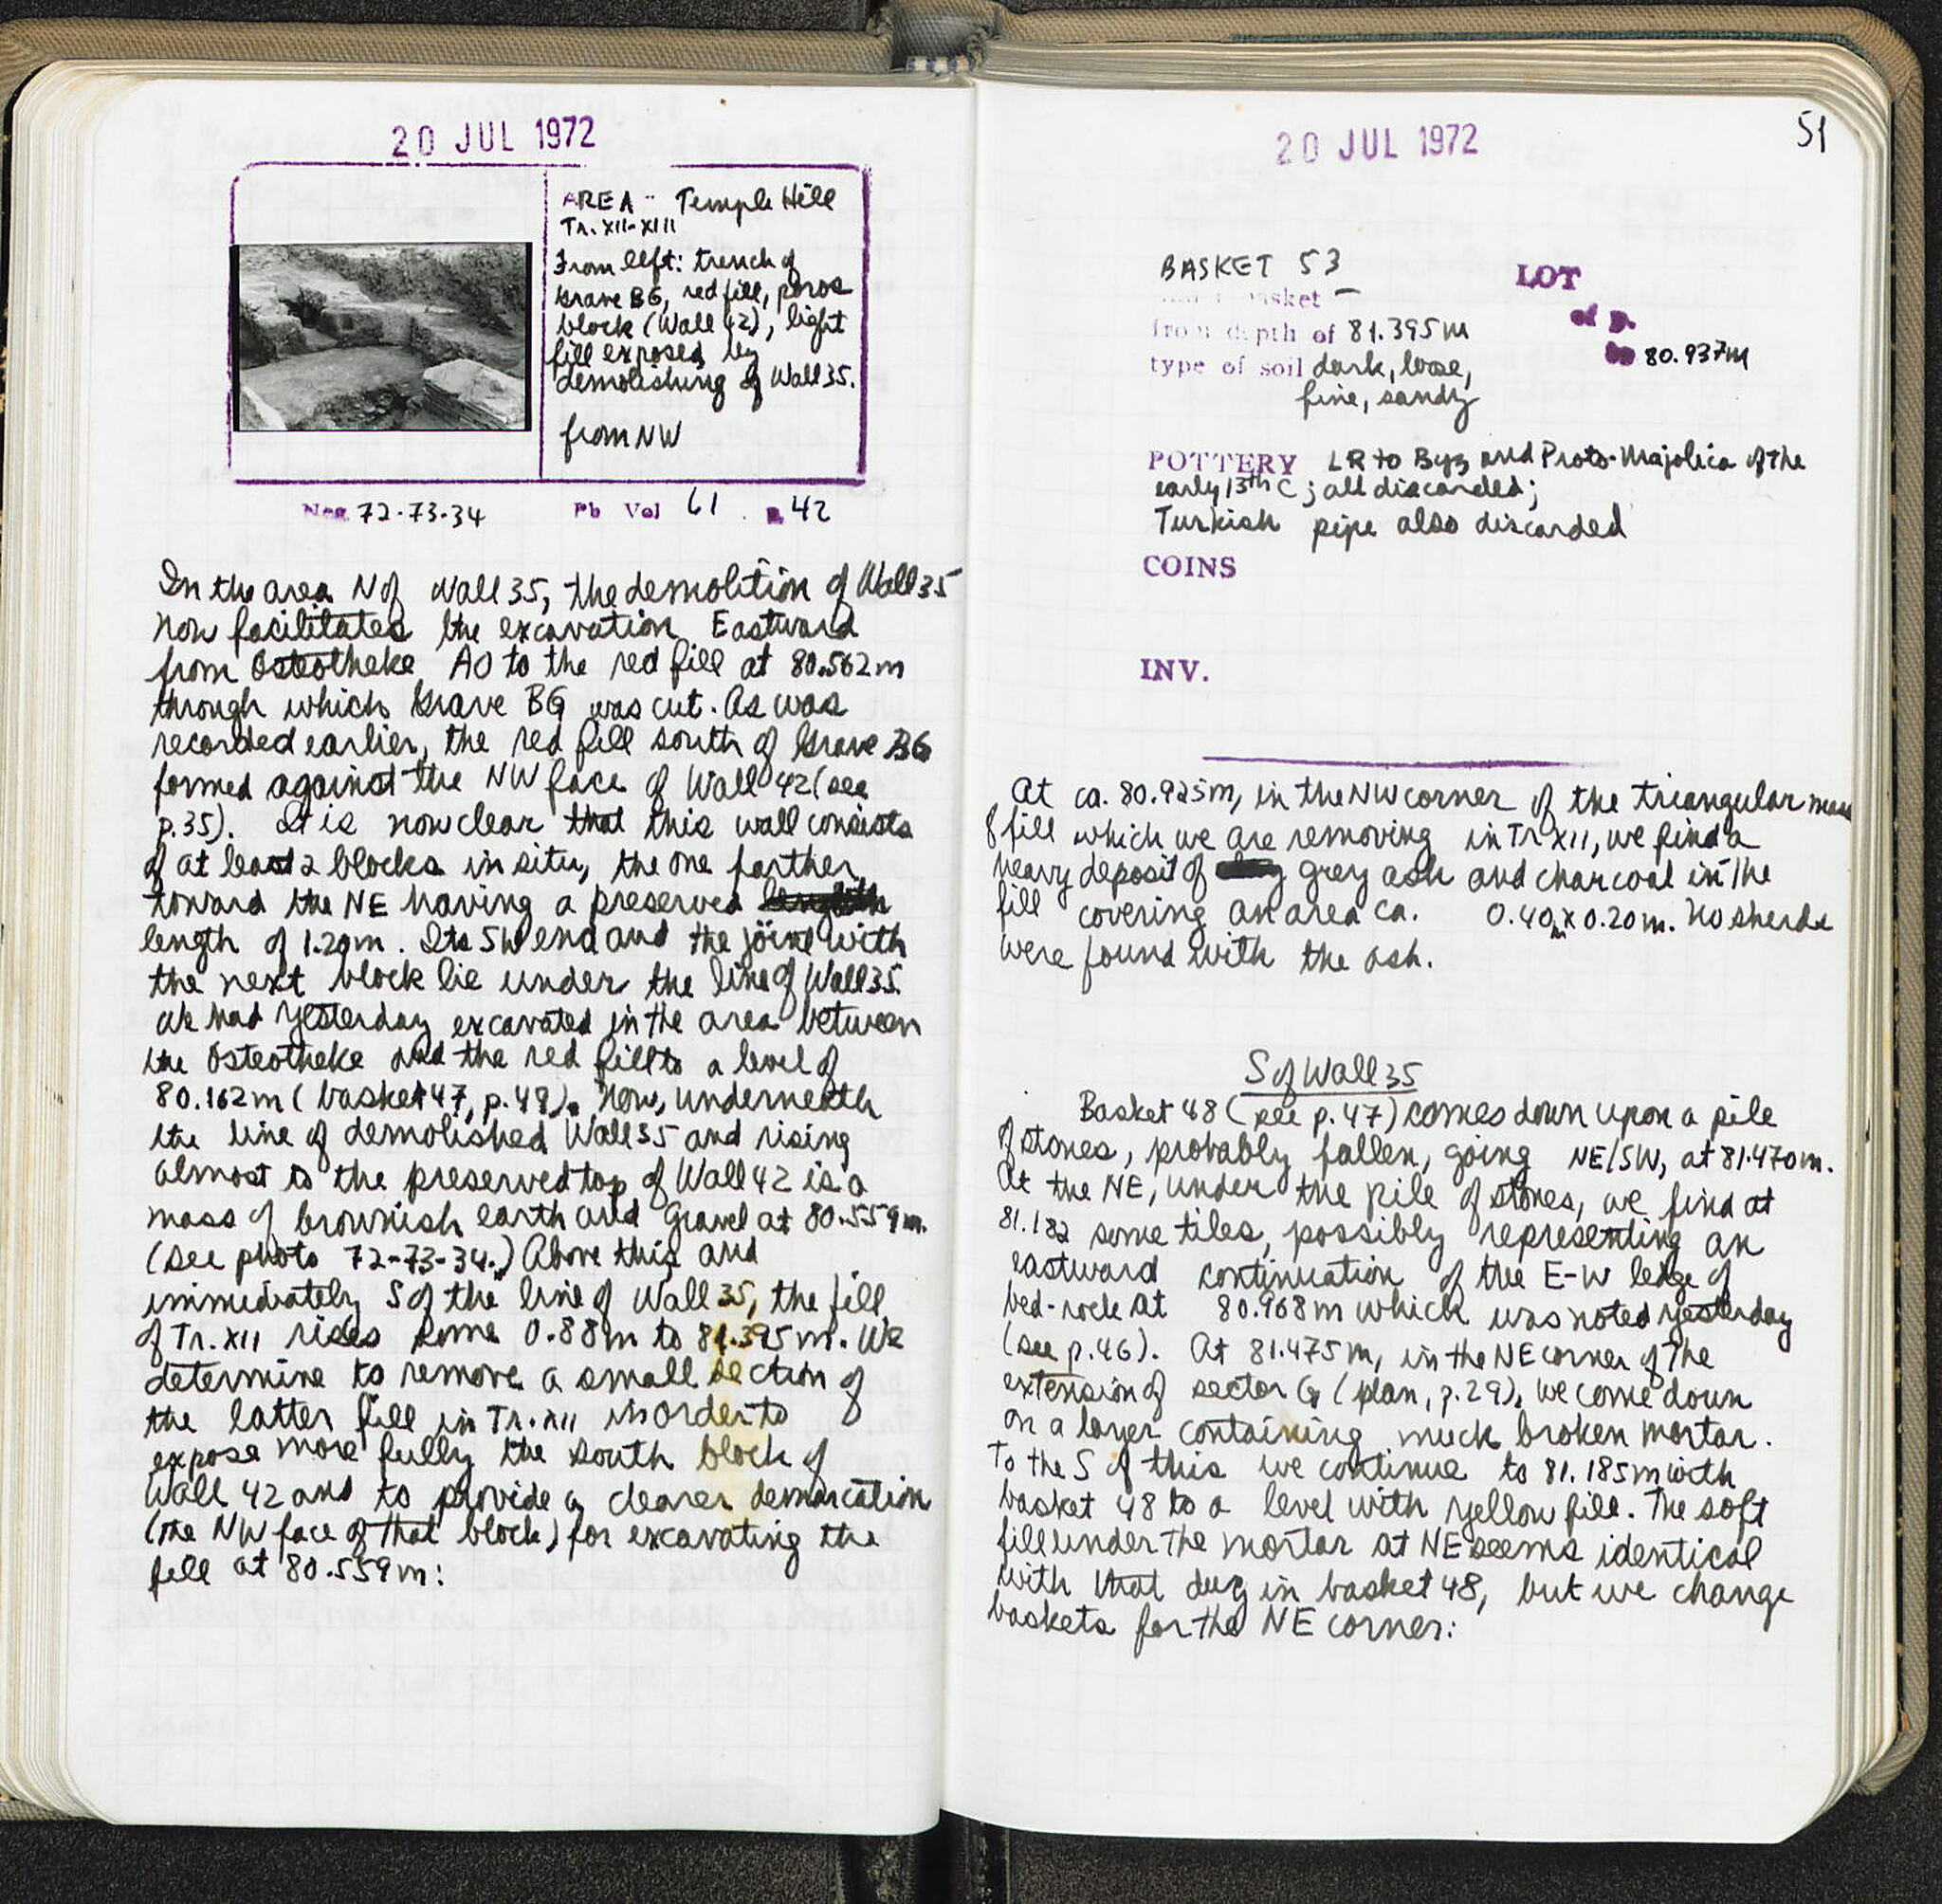 20 JUL 1972
AREA - Temple Hill
Tr. XII-XIII
From left: trench of
Grave BG, red fill, poros
block (Wall 42), light
fill exposed by
demolishing of Wall 35.
from NW
Neg. 72-73-34 Pb Vol 61 p. 42
In the area N of Wall 35, the demolition of Wall 35
now facilitates the excavation Eastward
from Osteotheke AO to the red fill at 80.562m
through which Grave BG was cut. As was
recorded earlier, the red fill south of Grave BG
formed against the NW face of Wall 42 (see
p.35). It is now clear that this wall consists
of at least 2 blocks in situ, the one farther
toward the NE having a preserved
length of 1.20m. Its SW end and the joint with
the next block lie under the line of Wall 35.
We had yesterday excavated in the area between
the Osteotheke and the red fill to a level of
80.162m (basket 47, p.49). Now, underneath
the line of demolished Wall 35 and rising
almost to the preserved top of Wall 42 is a
mass of brownish earth and gravel at 80.559m.
(see photo 72-73-34.) Above this and
immediately S of the line of Wall 35, the fill
of Tr. XII rises some 0.88m to 81.395m. We
determine to remove a small section of
the latter fill in Tr. XII in order to
expose more fully the south block of
Wall 42 and to provide a clearer demarcation
(the NW face of that block) for excavating the
fill at 80.559m:
20 JUL 1972
51
BASKET 53
LOT
basket –
of p.
from depth of 81.395m
to 80.937m
type of soil dark, loose,
fine, sandy
POTTERY LR to Byz and Proto-Majolica of the
early 13th C; all discarded;
Turkish pipe also discarded
COINS
INV.
At ca. 80.925m, in the NW corner of the triangular mass
of fill which we are removing in Tr XII, we find a
heavy deposit of grey ash and charcoal in the
fill covering an area ca. 0.40m x 0.20m. No sherds
were found with the ash.
S of Wall 35
Basket 48 (see p.47) comes down upon a pile
of stones, probably fallen, going NE/SW, at 81.470m.
At the NE, under the pile of stones, we find at
81.182 some tiles, possibly representing an
eastward continuation of the E-W ledge of
bed-rock at 80.968m which was noted yesterday
(see p.46). At 81.475m, in the NE corner of the
extension of sector G (plan, p.29), we come down
on a layer containing much broken mortar.
To the S of this we continue to 81.185m with
basket 48 to a level with yellow fill. The soft
fill under the mortar at NE seems identical
with that dug in basket 48, but we change
baskets for the NE corner: